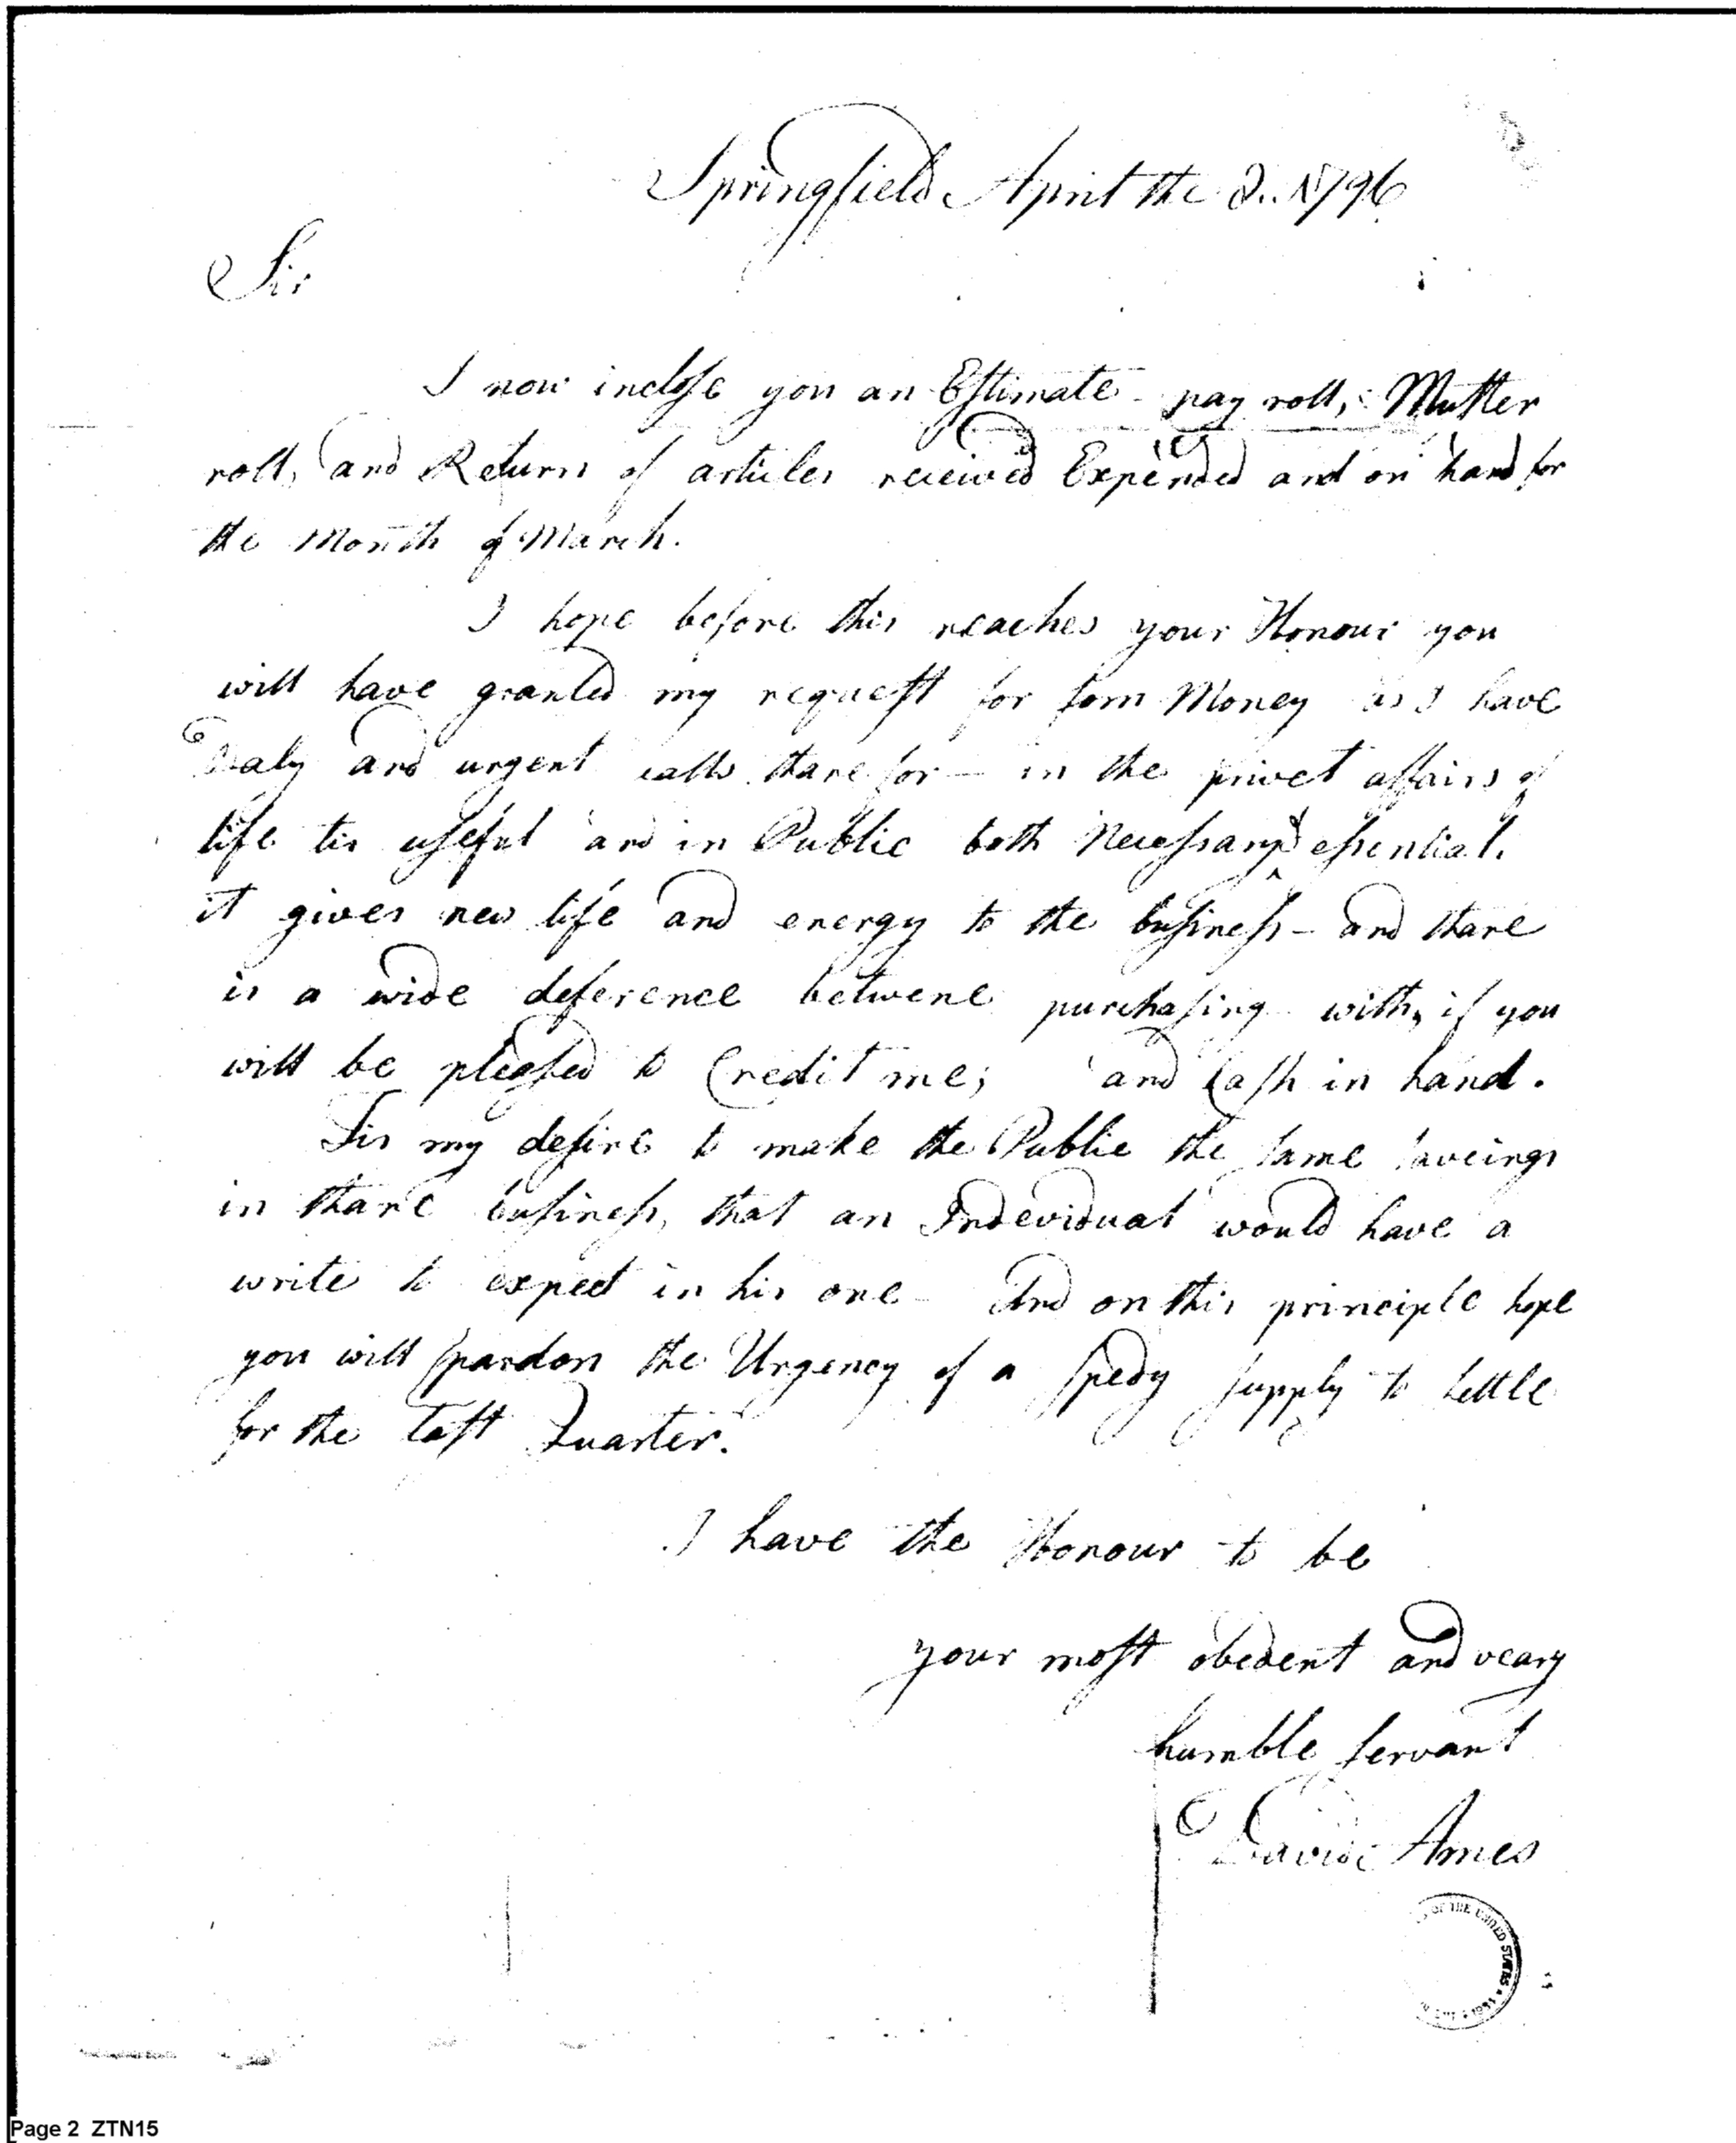 Springfield April the 2.. 1796
Sir
I now inclose you an Estimate pay roll, Muster
roll, and Return of articles received Expended and on hand for
the Month of March.
I hope before this reaches your Honour you
will have granted my request for som Money as I have
Daly and urgent calls thare for – in the privet affairs of
life tis useful and in Public both Necessary & essential.
it gives new life and energy to the business – and thare
is a wide deference betwene purchasing with, if you
will be pleased to Credit me; and Cash in hand.
Tis my desire to make the Public the same saveings
in thare business, that an Indevidual would have a
write to expect in his one – And on this principle hope
you will pardon the Urgency of a spedy supply to settle
for the last Quarter.
I have the Honour to be
your most obedent and veary
humble servant
David Ames
OF THE UNITED STATES
Page 2 ZTN15